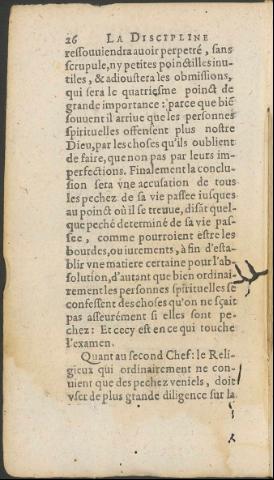 26 LA DISCIPLINE
ressouuiendra auoir perpetré, sans
scrupule, ny petites poinctilles inu-
tiles, & adioustera les obmissions,
qui sera le quatriesme poinct de
grande importance : parce que biẽ
souuent il arriue que les personnes
spirituelles offensent plus nostre
Dieu, par les choses qu'ils oublient
de faire, que non pas par leurs im-
perfections. Finalement la conclu-
sion sera vne accusation de tous
les pechez de sa vie passee iusques
au poinct où il se treuue, disãt quel-
que peché determiné de sa vie pas-
see, comme pourroient estre les
bourdes, ou iurements, à fin d'esta-
blir vne matiere certaine pour l'ab-
solution, d'autant que bien ordinai-
rement les personnes spirituelles se
confessent des choses qu'on ne sçait
pas asseurément si elles sont pe-
chez : Et cecy est en ce qui touche
l'examen.
Quant au second Chef: le Reli-
gieux qui ordinairement ne con-
uient que des pechez veniels, doit
vser de plus grande diligence sur la